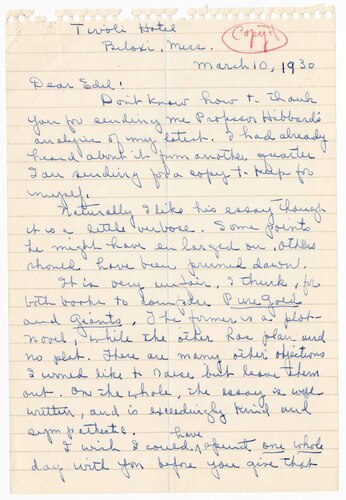 Tivoli Hotel
Biloxi, Miss.
Copy
March 10, 1930
Dear Edel:
Don't know how to thank
you for sending me Professor Hibbard's
analysis of my latest. I had already
heard about it from another quarter
I am sending for a copy to keep for
myself.
Naturally I like his essay though
it is a little verbose. Some points
he might have enlarged on, others
should have been pruned down.
It is very unfair, I think, for
both books to compare Pure Gold
and Giants. The former is a plot-
novel, while the other has plan and
no plot. There are many other objections
I would like to raise but leave them
out. On the whole, the essay is well
written, and is exceedingly kind and
sympathetic.
I wish I could have spent one whole
day with you before you give that